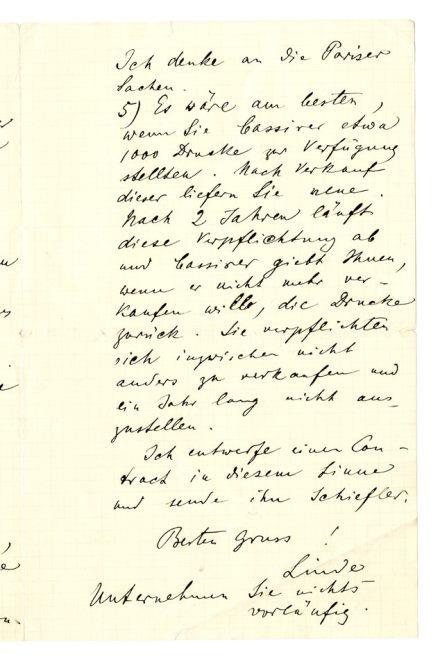 Ich denke an die Pariser
Sachen.
5) Es wäre am besten,
wenn Sie Cassirer etwa
1000 Drucke zur Verfügung
stellten. Nach Verkauf
dieser liefern Sie neue.
Nach 2 Jahren läuft
diese Verpflichtung ab
und Cassirer giebt Ihnen,
wenn er nicht mehr ver-
kaufen will, die Drucke
zurück. Sie verpflichten
sich inzwischen nicht
anders zu verkaufen und
ein Jahr lang nicht aus-
zustellen.
Ich entwerfe einen Con-
tract in diesem Sinne
und sende ihn Schiefler.
Besten Gruss!
Linde
Unternehmen Sie nichts
vorläufig.